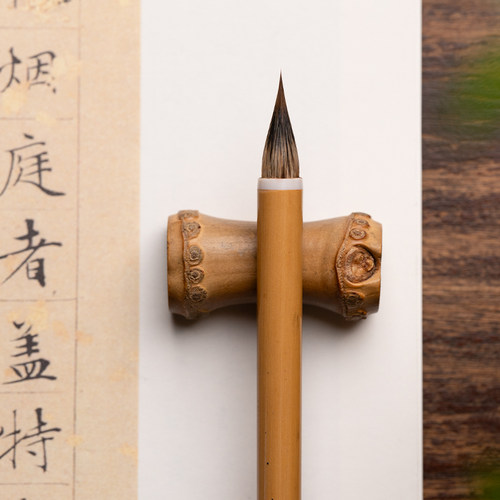 烟庭者盖特